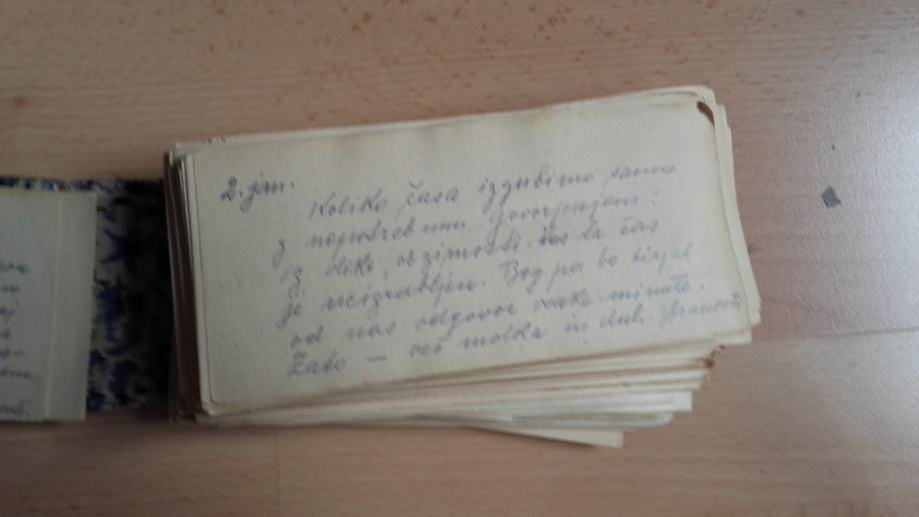 2. jan.
Koliko časa izgubimo samo
z nepotrebnim govorjenjem!
iz olike, obzirnosti. In ta čas
je neizrabljen. Bog pa bo tirjal
od nas odgovor vsake minute.
Zato — več molka in duh. zbranosti